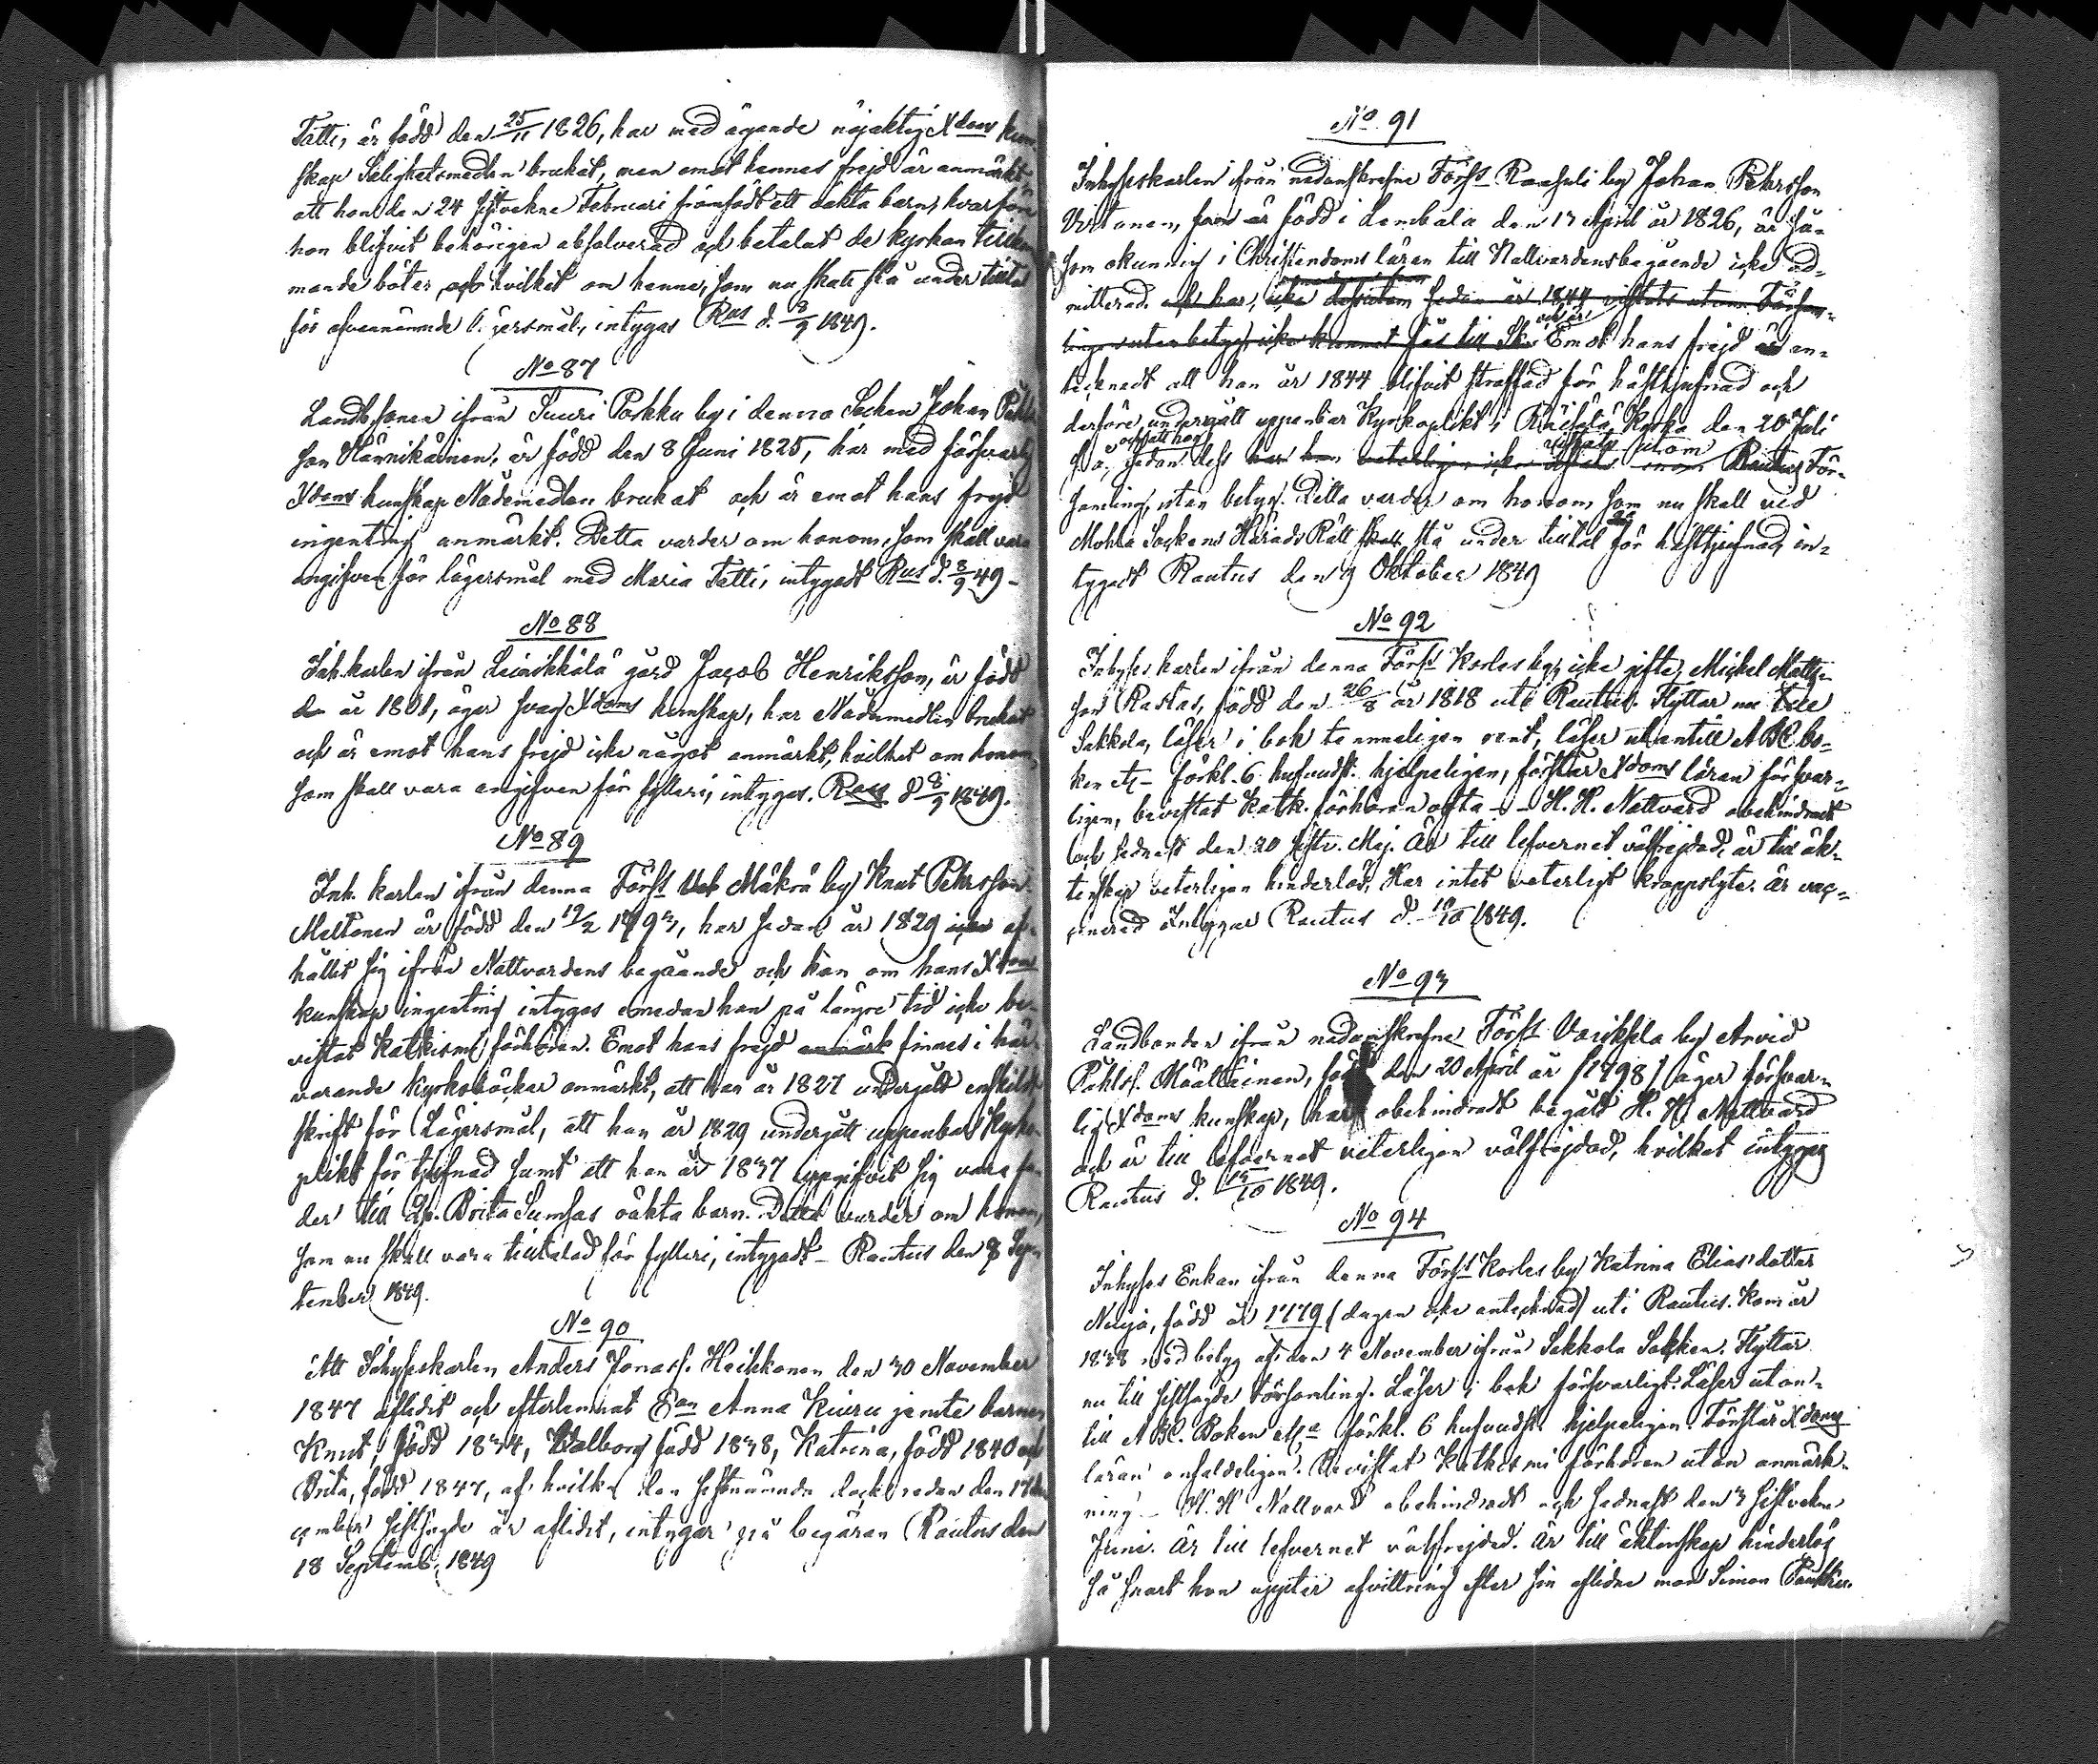 Tatti, är född den 25/11 1826, har med ägande nöjaktig Xdoms kun-
skap Salighetsmedlen brukat, men emot hennes frejd är anmärkt
att hon den 24 sistvekne Februari framfödt ett oäkta barn, hvarföre
hon blifvit behörigen absolverad och betalat de kyrkan tillkom-
mande böter, och hvilket om henne, som nu skall stå under tilltal
för ofvannämnde lägersmål, intygas Rus d. 8/9 1849.
No 87
Landb.sonen ifrån Suuri Porkku by i denna Socken Johan Pehrs-
son Hännikäinen, är född den 8 Juni 1825, har med försvarlig
Xdoms kunskap Nådemedlen brukat och är emot hans frejd
ingenting anmärkt. Detta varder om honom, som skall vara
angifven för lägersmål med Maria Tatti, intygadt Rus d. 8/9 49 -
No 88
Inh.karlen ifrån Leinikkälä gård Jacob Henriksson, är född
år 1801, äger svag Xdoms kunskap, har Nådemedlen brukat
och är emot hans frejd icke något anmärkt, hvilket om honom,
som skall vara angifven för fylleri, intygas. Raus d 8/9 1849.
No 89
Inh. karlen ifrån denna Förs:s Mäkrä by Knut Pehrsson
Meltonen är född den 19/2 1793, har sedan år 1829 af-
hållit sig ifrån Nattvardens begående och kan om hans Xdoms
kunskap ingenting intygas emedan han på längre tid icke be-
vistat Katkismi förhören. Emot hans frejd anmärk finnes i här-
varande kyrkoböcker anmärkt, att han år 1827 undergått enskildt
skrift för Lägersmål, att han år 1829 undergått uppenbar kyrko-
plikt för tjufnad samt att han år 1837 uppgifvit sig vara fa-
der till Brita Sumsas oäkta barn. Detta varder om honom,
som nu skall vara tilltalad för fylleri, intygadt - Rautus den 8 Sep-
tember 1849.
No 90
Att Inhyseskarlen Anders Jonass. Heikkonen den 30 November
1847 aflidit och efterlemnat Ean Anna Kiuru jemte barnen
Knut, född 1834, Walborg född 1838, Katrina, född 1840 och
Brita, född 1847, af hvilka den sistnämnde dock redan den 17 De-
cember sistsagde år aflidit, intygar på begäran Rautus den
18 Septemb. 1849
No 91
Inhyseskarlen ifrån nedanskrefne Förs:s Raasuli by Johan Pehrsson
Virtanen, som är född i Lembala den 13 April år 1826, är så-
som okunnig i Christendoms läran till Nattvardens begående icke ad-
mitterad. och har, icke dessutom sedan år 1844 vistats utom Försam-
lingen utan betyg, icke kunnat fås till Sk Emot hans frejd är an-
tecknadt att han år 1844 blifvit straffad för häst tjufnad och
derföre undergått uppenbar Kyrkoplikt i Räisälä kyrka den 20 Juli
s. å, och att han sedan dess vistats utom Rautus För-
samling, utan betyg. Detta varder om honom, som nu skall ved
Mohla Sockens Härads Rätt stå under tilltal för häst tjufnad, in-
tygadt Rautus den 9 Oktober 1849
No 92
Inhyses karlen ifrån denna Förs:s Korles by, icke gifte, Mickel Matts-
son Rastas, född den 26/8 år 1818 uti Rautus. Flyttar nu till
Sakkola, läser i bok temmeligen rent, läser utantill ABC bo-
ken &c - förkl. 6 hufvudst. hjelpeligen, förstår Xdoms läran försvar-
ligen, bevistat Katk. förhören ofta - - H. H. Nattvard obehindradt
och sednast den 20 sistv. Maj. Är till lefvernet välfrejdad, är till äk-
tenskap veterligen hinderlös, Har intet veterligt kroppslyte. är vac-
cinerad Intygar Rautus d. 10/10 1849.
No 93
Landbonden ifrån nedanskrefne Förs:s Varikselä by Arvid
Pohlss. Määttäinen, född den 20 April år (1798) äger försvar-
lig Xdoms kunskap, har obehindradt begått H. H. Nattvard
och är till lefvernet veterligen välfrejdad, hvilket intygas
Rautus d. 13/10 1849.
No 94
Inhyses Enkan ifrån denna Förs:s Korles by Katrina Elias dotter
född år 1779 (dagen icke antecknad) uti Rautus. Kom år
1838 med betyg af den 4 November ifrån Sakkola Sokken. Flyttar
nu till sistsagde Församling. Läser i bok försvarligt. Läser utan-
till ABC. Boken &c förkl. 6 hufvudst. hjelpeligen. Förstår Xdoms
läran enfaldeligen. Bevistat Katkesmi förhören utan anmärk-
ning - H. H. Nattvard obehindradt och sednast den 3 sistvekne
Juni. Är till lefvernet välfrejdad. Är till äktenskap hinderlös
så snart hon uppter afvittring efter sin aflidne man Simon